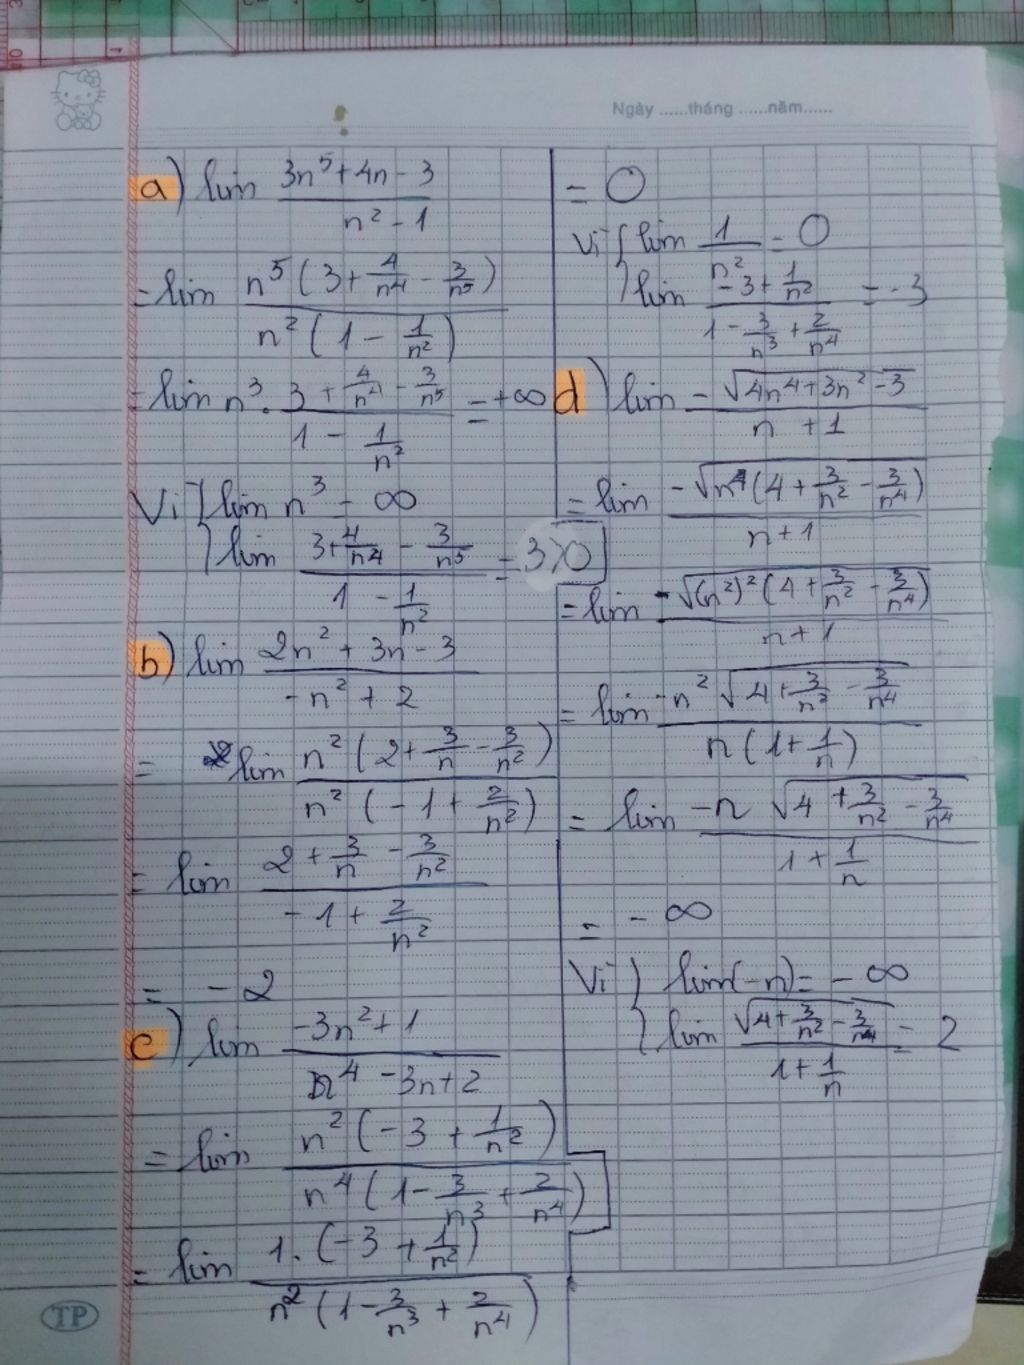 Ngày ......tháng ......năm......
a) lim (3n⁵ + 4n - 3)/(n² - 1)
= lim (n⁵(3 + 4/n⁴ - 3/n⁵))/(n²(1 - 1/n²))
= lim n³ . (3 + 4/n⁴ - 3/n⁵)/(1 - 1/n²) = +∞
Vì { lim n³ = ∞
lim (3 + 4/n⁴ - 3/n⁵)/(1 - 1/n²) = 3 > 0
b) lim (2n² + 3n - 3)/(-n² + 2)
= lim (n²(2 + 3/n - 3/n²))/(n²(-1 + 2/n²))
= lim (2 + 3/n - 3/n²)/(-1 + 2/n²)
= -2
c) lim (-3n² + 1)/(n⁴ - 3n + 2)
= lim (n²(-3 + 1/n²))/(n⁴(1 - 3/n³ + 2/n⁴))
= lim (1.(-3 + 1/n²))/(n²(1 - 3/n³ + 2/n⁴))
= 0
Vì { lim 1/n² = 0
lim (-3 + 1/n²)/(1 - 3/n³ + 2/n⁴) = -3
d) lim (-√(4n⁴ + 3n² - 3))/(n + 1)
= lim (-√(n⁴(4 + 3/n² - 3/n⁴)))/(n + 1)
= lim (-√((n²)²(4 + 3/n² - 3/n⁴)))/(n + 1)
= lim (-n²√(4 + 3/n² - 3/n⁴))/(n(1 + 1/n))
= lim (-n√(4 + 3/n² - 3/n⁴))/(1 + 1/n)
= -∞
Vì { lim(-n) = -∞
lim (√(4 + 3/n² - 3/n⁴))/(1 + 1/n) = 2
TP